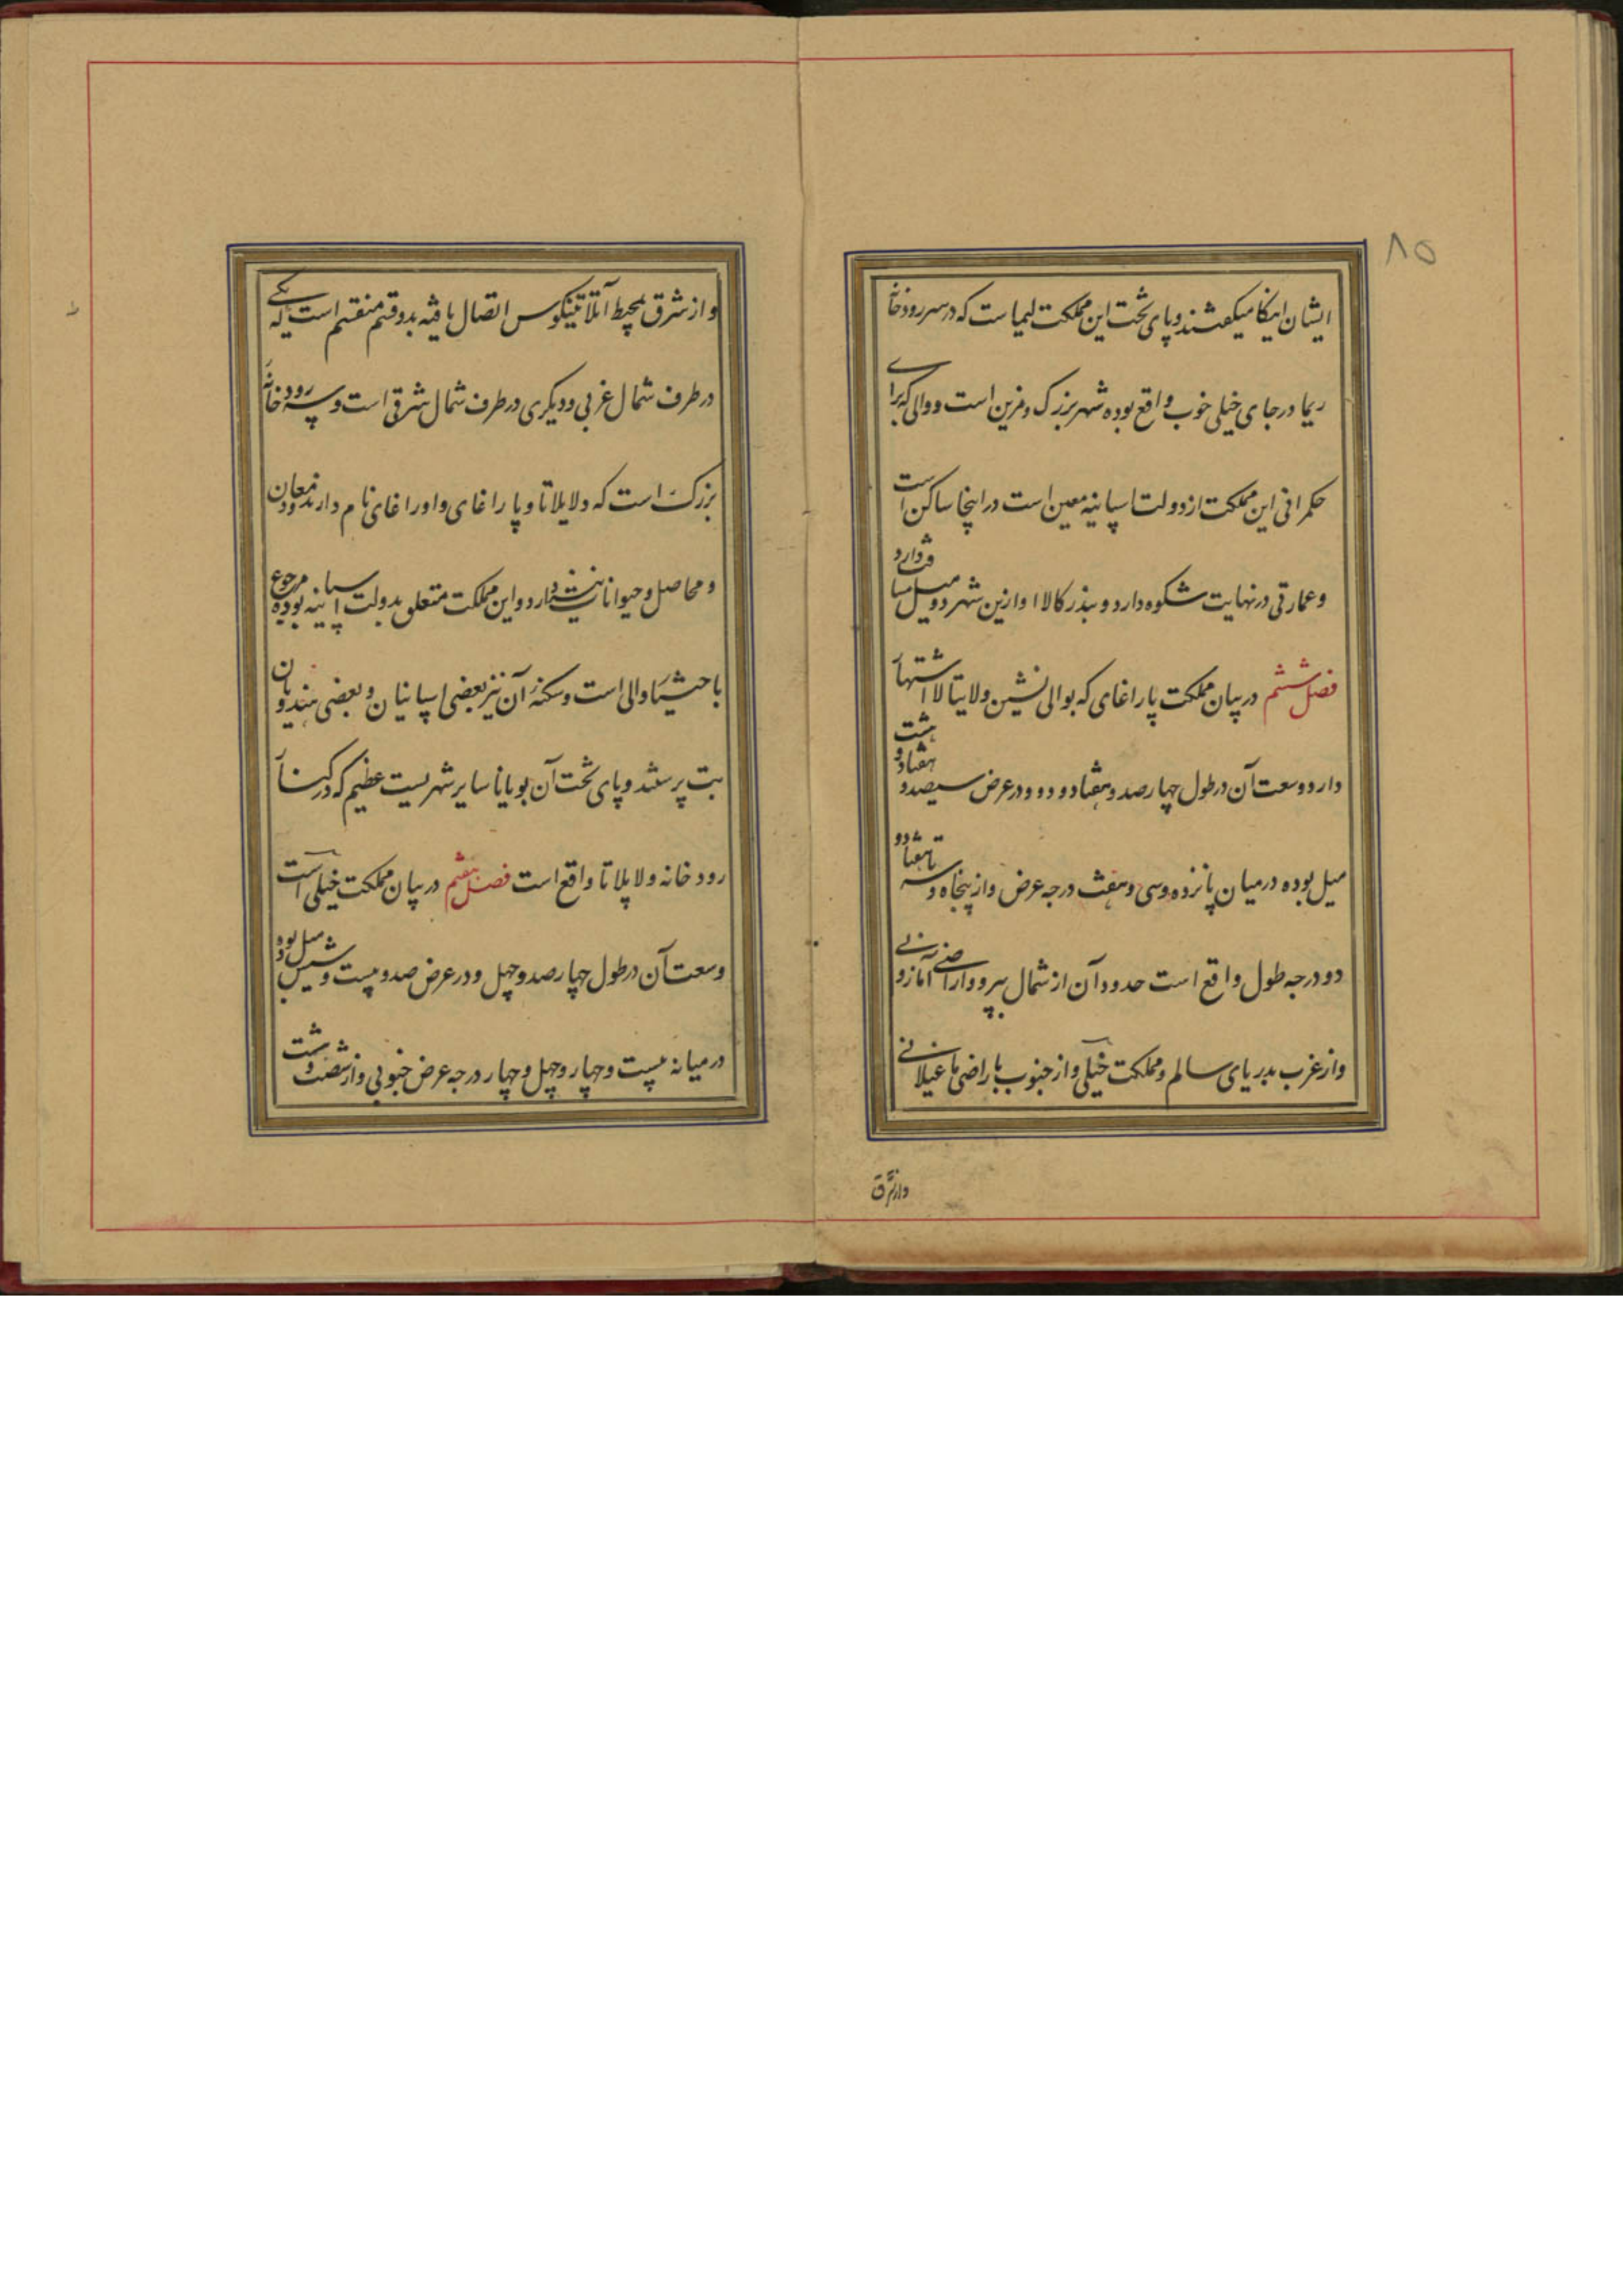 ۸۵
ایشان اینکا میکفتند و پای تخت این مملکت لیما است که در سر رودخانه
ریما در جای خیلی خوب واقع بوده شهر بزرک و مزین است و والی که برای
حکمرانی این مملکت از دولت اسپانیه معین است در اینجا ساکن است
و عمارتی در نهایت شکوه دارد و بندر کالااو ازین شهر دو میل مسافت دارد
فصل ششم در بیان مملکت پاراغای که بوالی نشین ولایتا لا اشتهار
دارد وسعت آن در طول چهارصد و هفتاد و دو و در عرض سیصد و هفتاد و هشت
میل بوده در میان پانزده و سی و هفت درجه عرض و از پنجاه و سه تا هفتاد و
دو درجه طول واقع است حدود آن از شمال بپرو و اراضی آمازونی
و از غرب بدریای سالم و مملکت خیلی و از جنوب باراضی ماغیلانی
و از شرق
و از شرق بمحیط آتلانتیکوس اتصال یافته بدو قسم منقسم است یکی که
در طرف شمال غربی و دیکری در طرف شمال شرقی است و سه رودخانه
بزرک است که دلاپلاتا و پاراغای و اوراغای نام دارند و معادن
و محاصل و حیوانات نیز دارد و این مملکت متعلق بدولت اسپانیه بوده مرجوع
باحیشیا والی است و سکنهٔ آن نیز بعضی اسپانیان و بعضی هندویان
بت پرستند و پای تخت آن بویاناسایر شهریست عظیم که در کنار
رودخانه ولاپلاتا واقع است فصل هفتم در بیان مملکت خیلی است
وسعت آن در طول چهارصد و چهل و در عرض صد و بیست و شش میل بوده
در میانه بیست و چهار و چهل و چهار درجه عرض جنوبی و از شصت و هشت